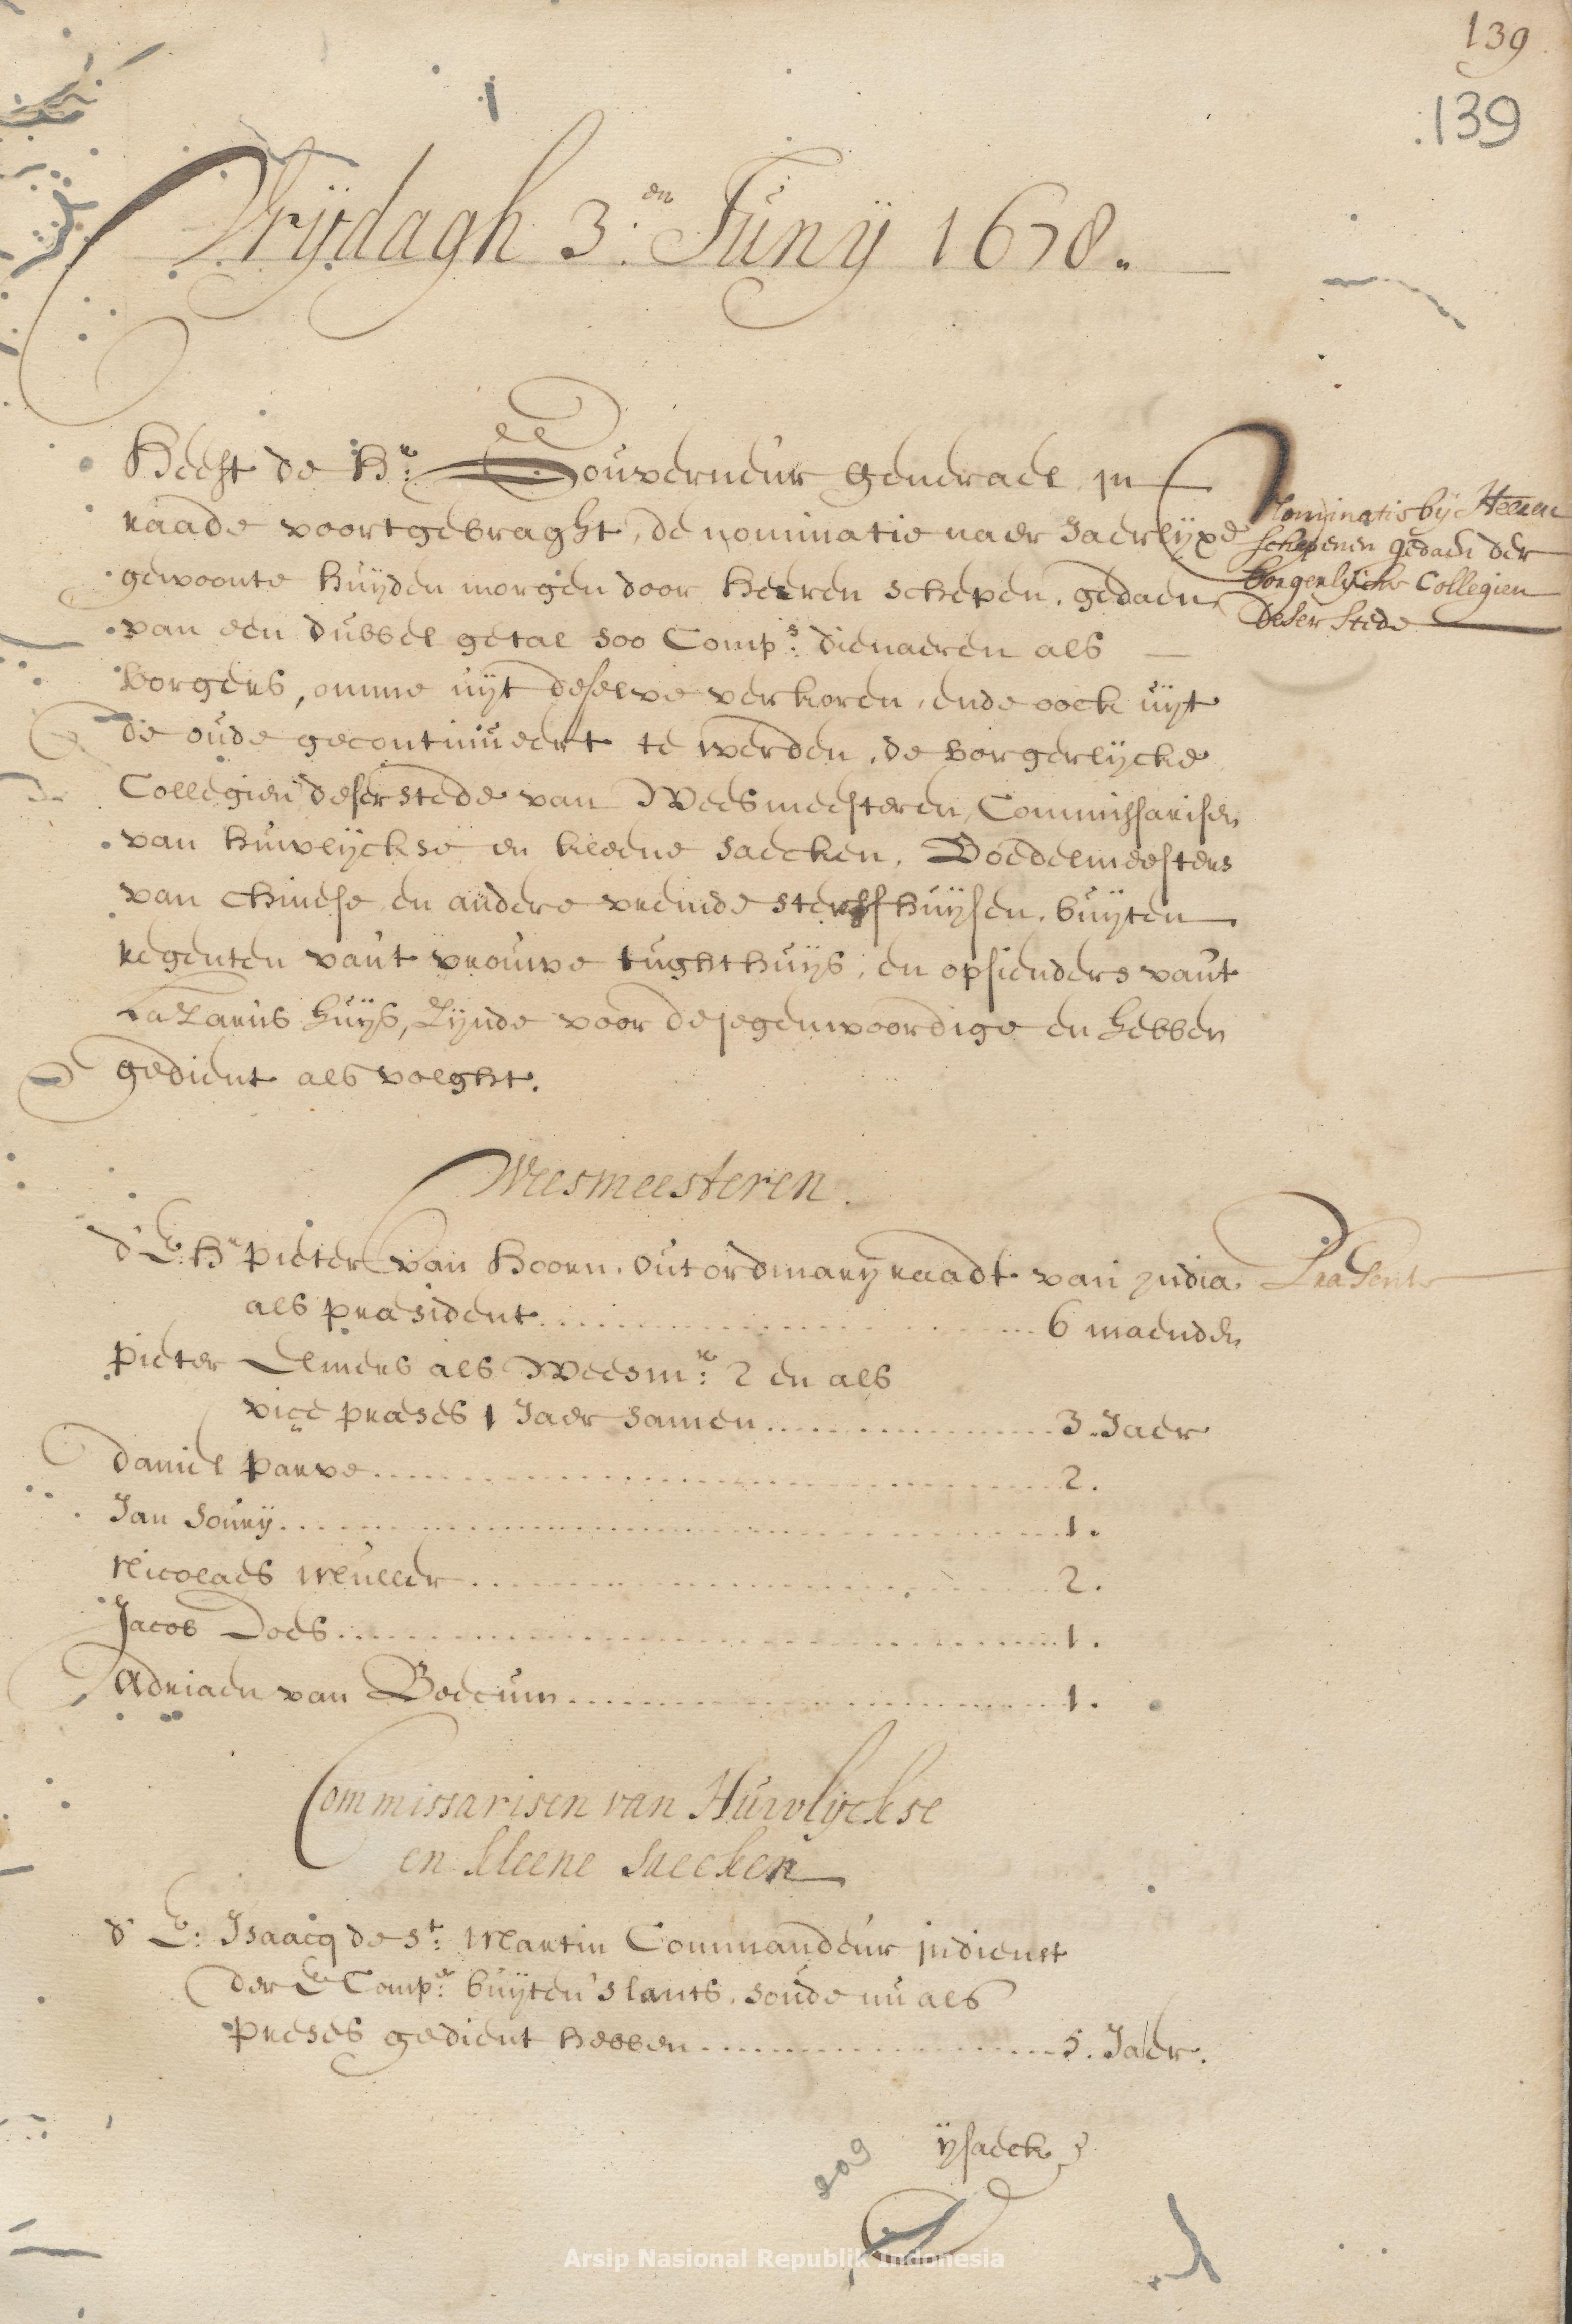 139
139
Vrijdagh 3:en Junij 1678.
Heeft de Hr: Gouverneur Generael in
raade voortgebraght, de nominatie naer Jaerlijxe
gewoonte huijden morgen door heeren schepen, gedaen
van een dubbel getal soo Comps: dienaeren als
borgers, omme uijt deselve verkoren, ende oock uijt
de oude gecontinueert te werden, de borgerlijcke
Collegien deser stede van Weesmeesteren, Commissarisen
van huwlijckse en kleene saecken, Boedelmeesters
van Chinese en andere vremde sterfhuijsen, buijten
regenten vant vrouwe tughthuijs, en opsienders vant
Lazarus huijs, zijnde voor de jegenwoordige en hebben
gedient als volght.
Nominatie bij Heeren
schepenen gedaen der
borgerlijcke Collegien
deser stede
Weesmeesteren.
d' E: Hr pieter van Hoorn, out ordinarij raadt van India.
Præsente
als præsident 6 maenden
pieter Elmers als Weesmr: 2 en als
vice præses 1 Jaer samen 3. Jaer
Daniel parve 2.
Jan Sourij 1.
Nicolaes Muller 2.
Jacob Does 1.
Adriaen van Beecum 1.
Commissarisen van Huwlijckse
en kleene saecken
d' E: Isaacq de St: Martin Commandeur in dienst
der E Compe: buijten 's lants, soude nu als
preses gedient hebben 5. Jaer.
ijsaeck
209
Arsip Nasional Republik Indonesia